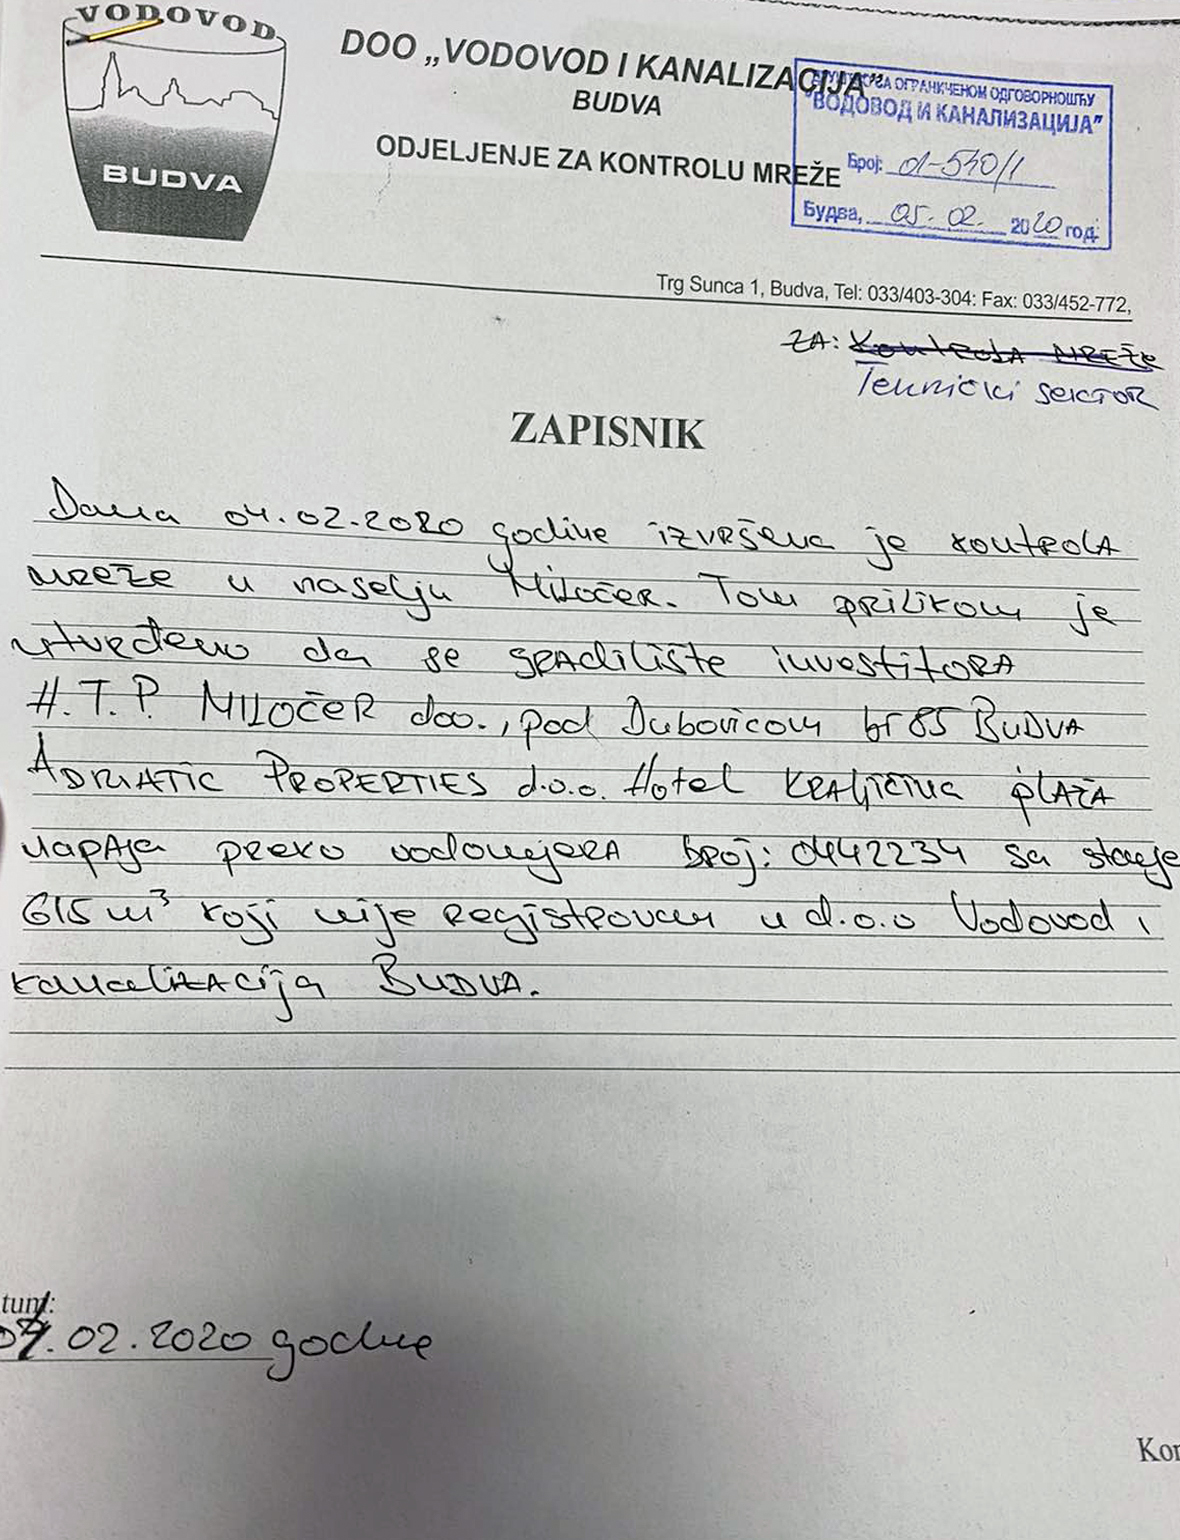 VODOVOD
BUDVA
DOO „VODOVOD I KANALIZACIJA”
BUDVA
ODJELJENJE ZA KONTROLU MREŽE
ДРУШТВО СА ОГРАНИЧЕНОМ ОДГОВОРНОШЋУ
"ВОДОВОД И КАНАЛИЗАЦИЈА"
Број: 01-540/1
Будва, 05.02. 2020 год.
Trg Sunca 1, Budva, Tel: 033/403-304: Fax: 033/452-772,
ZA: Kontrola mreže
Tehnički sektor
ZAPISNIK
Dana 04.02.2020 godine izvršena je kontrola
mreže u naselju Miločer. Tom prilikom je
utvrđeno da se gradilište investitora
H.T.P. MILOČER doo., pod Dubovicom br 85 BUDVA
ADRIATIC PROPERTIES d.o.o. Hotel Kraljičina plaža
napaja preko vodomjera broj: 0442234 sa stanje
615 m³ koji nije registrovan u d.o.o Vodovod i
kanalizacija BUDVA.
tum:
04.02.2020 godine
Kon